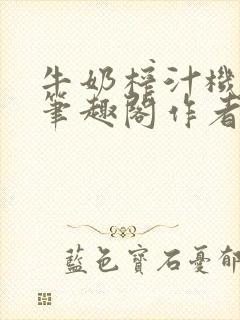 牛奶榨汁機
筆趣閣作者
藍色寶石憂郁